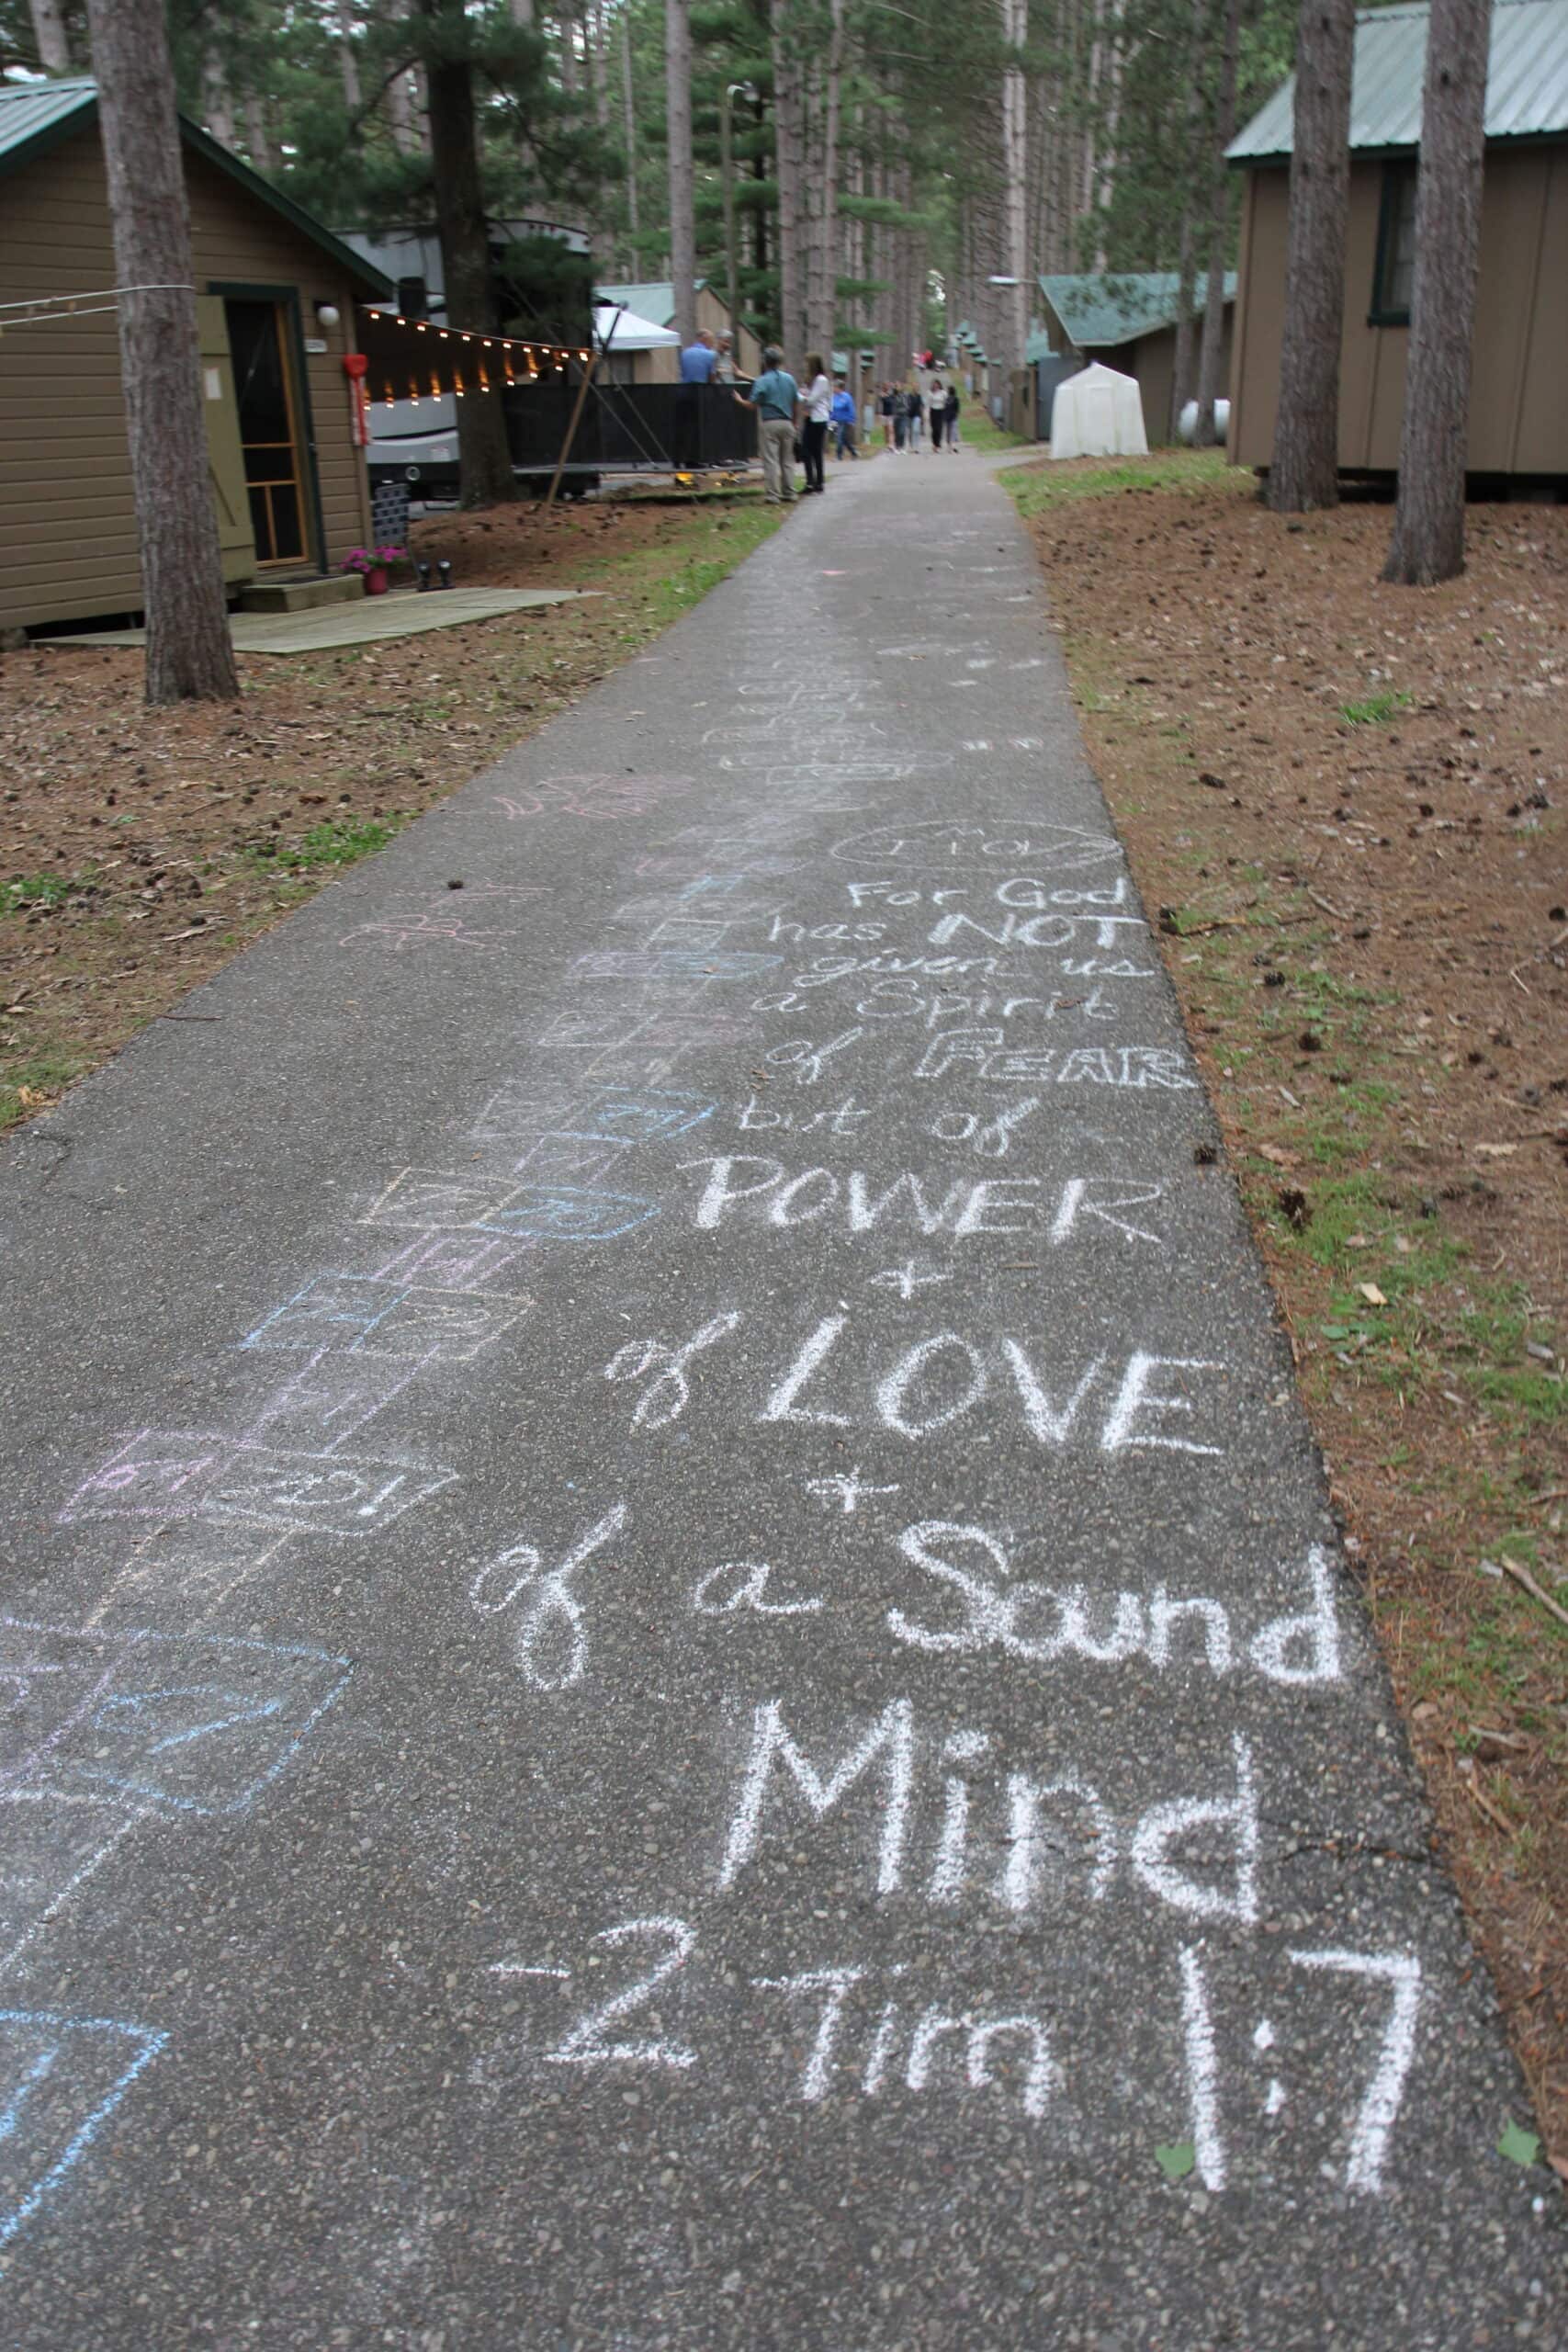 For God
has NOT
given us
a Spirit
of FEAR
but of
POWER
+
of LOVE
+
of a Sound
Mind
-2 Tim 1:7